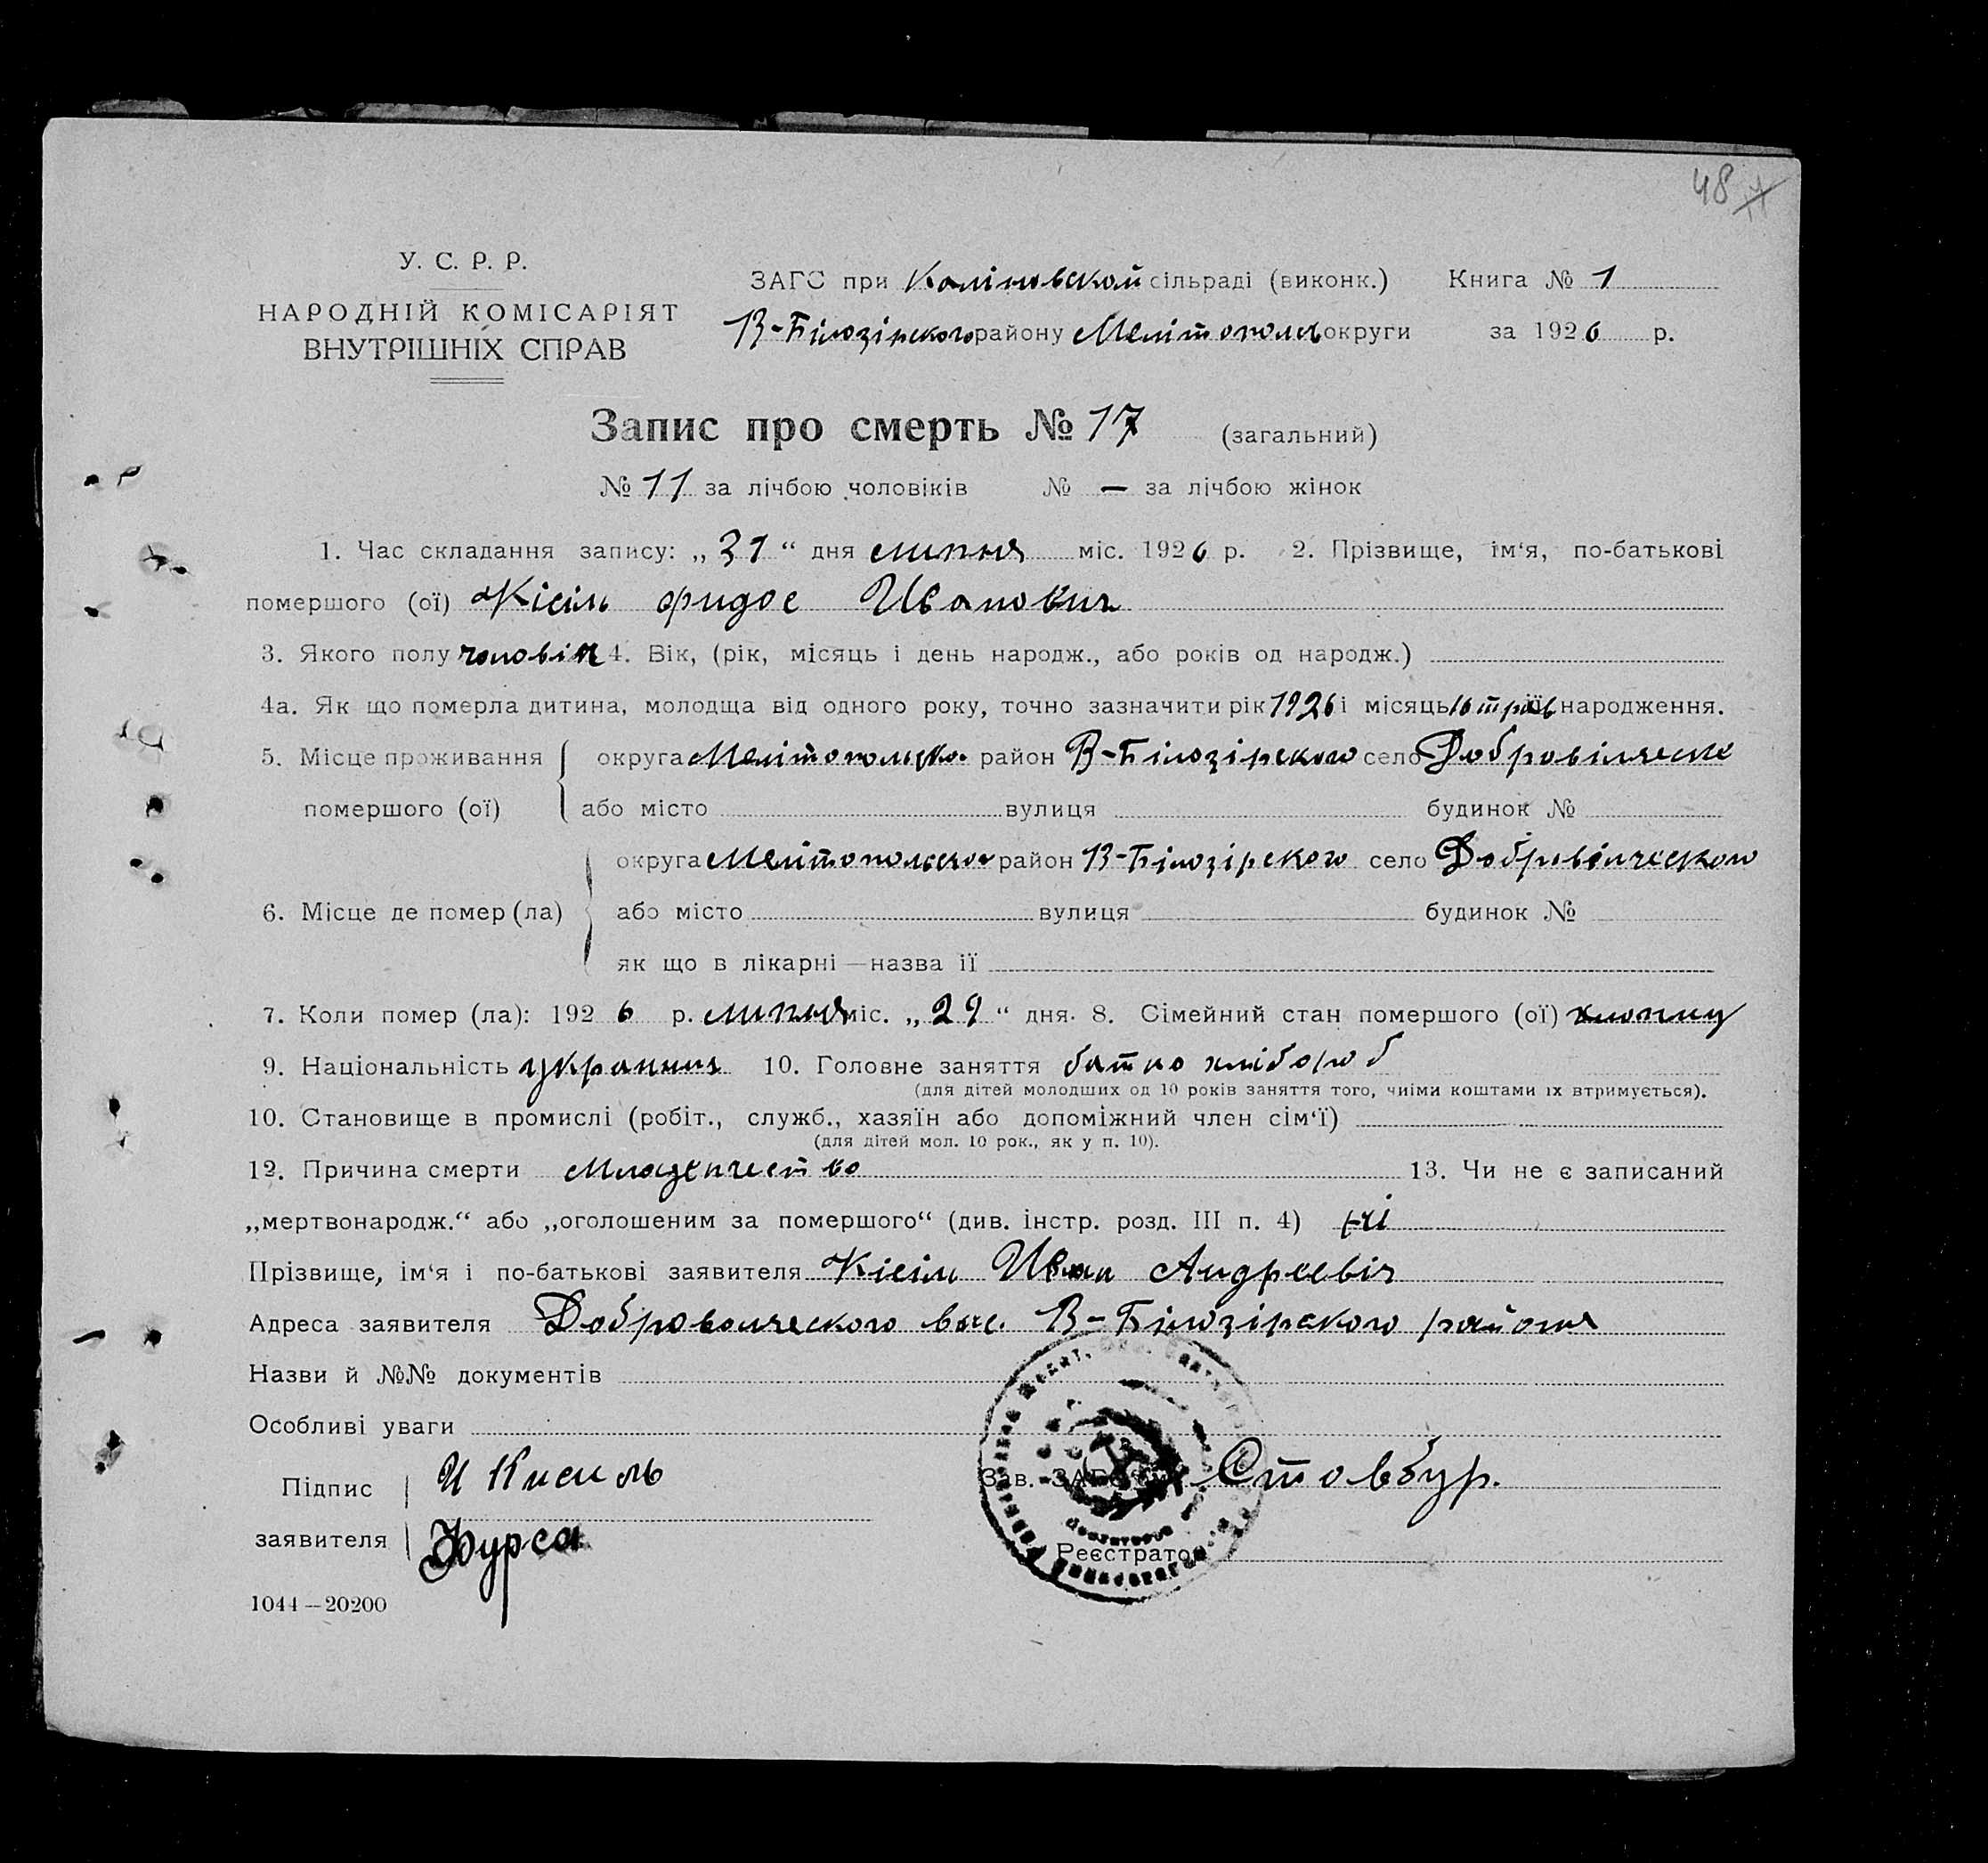 48
У. С. Р. Р.
НАРОДНІЙ КОМІСАРІЯТ
ВНУТРІШНІХ СПРАВ
ЗАГС при Каліновской сільраді (виконк.) Книга № 1
В-Білозірского району Мелітополь округи за 1926 р.
Запис про смерть № 17 (загальний)
№ 11 за лічбою чоловіків № — за лічбою жінок
1. Час складання запису: „31“ дня липня міс. 1926 р. 2. Прізвище, ім‘я, по-батькові
помершого (ої) Кісіль Фидос Иванович
3. Якого полу чоловік 4. Вік, (рік, місяць і день народж., або років од народж.)
4а. Як що померла дитина, молодща від одного року, точно зазначити рік 1926 і місяць 16 трав її народження.
5. Місце проживання округа Мелітопольско район В-Білозірского село Добровільческ
помершого (ої) або місто вулиця будинок №
округа район В-Білозірского село Добровільческом
6. Місце де помер (ла) або місто вулиця будинок №
як що в лікарні — назва її
7. Коли помер (ла): 1926 р. липня міс. „29“ дня. 8. Сімейний стан помершого (ої)
9. Національність 10. Головне заняття батко хлібороб
(для дітей молодших од 10 років заняття того, чиіми коштами їх втримується).
10. Становище в промислі (робіт., служб., хазяїн або допоміжний член сім‘ї)
(для дітей мол. 10 рок., як у п. 10).
12. Причина смерти Младенчество 13. Чи не є записаний
„мертвонародж.“ або „оголошеним за помершого“ (див. інстр. розд. III п. 4) ні
Прізвище, ім‘я і по-батькові заявителя Кісіль Иван Андреевіч
Адреса заявителя Добровольческого выс. В-Білозірского района
Назви й №№ документів
Особливі уваги
Підпис И Кисиль
заявителя Фурса
Зав. ЗАГС Стовбур.
Реєстратор
1044—20200